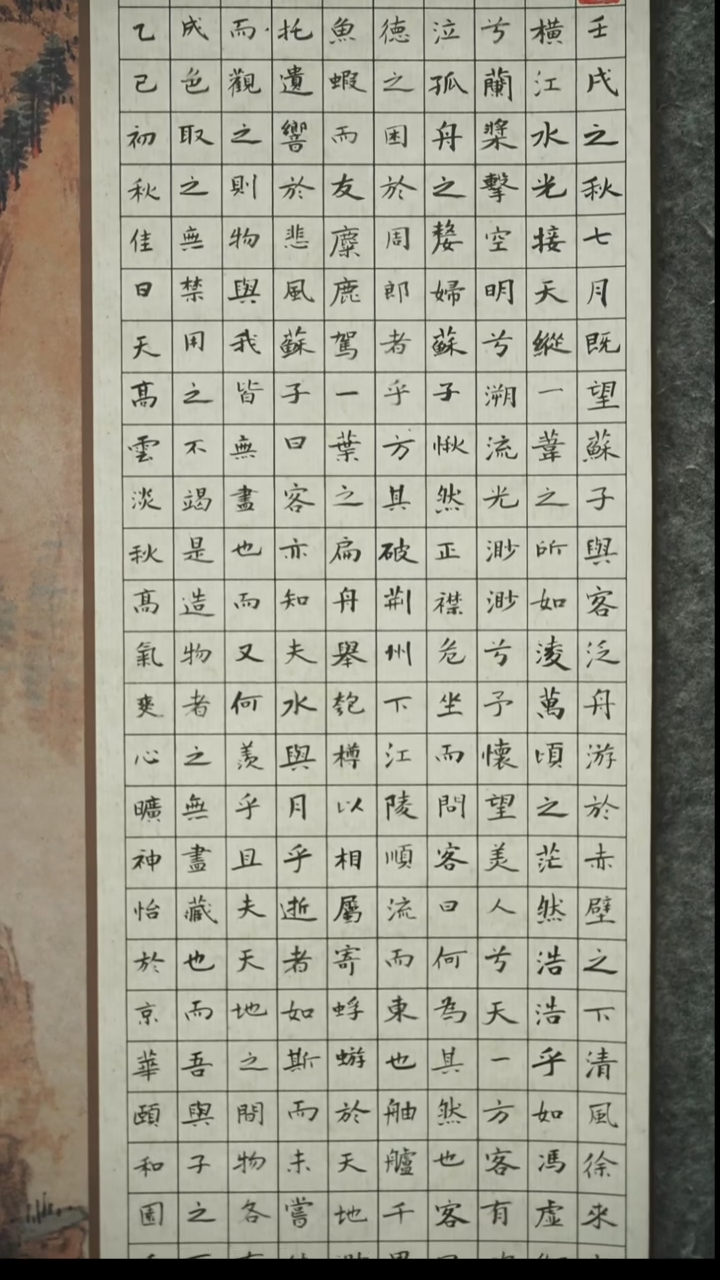 壬戌之秋七月既望蘇子與客泛舟游於赤壁之下清風徐來
橫江水光接天縱一葦之所如淩萬頃之茫然浩浩乎如馮虛
兮蘭槳擊空明兮溯流光渺渺兮予懷望美人兮天一方客有
泣孤舟之嫠婦蘇子愀然正襟危坐而問客曰何為其然也客
德之困於周郎者乎方其破荆州下江陵順流而東也舳艫千
魚蝦而友麋鹿駕一葉之扁舟舉匏樽以相屬寄蜉蝣於天地
托遺響於悲風蘇子曰客亦知夫水與月乎逝者如斯而未嘗
而觀之則物與我皆無盡也而又何羨乎且夫天地之間物各
成色取之無禁用之不竭是造物者之無盡藏也而吾與子之
乙巳初秋佳日天高雲淡秋高氣爽心曠神怡於京華頤和園